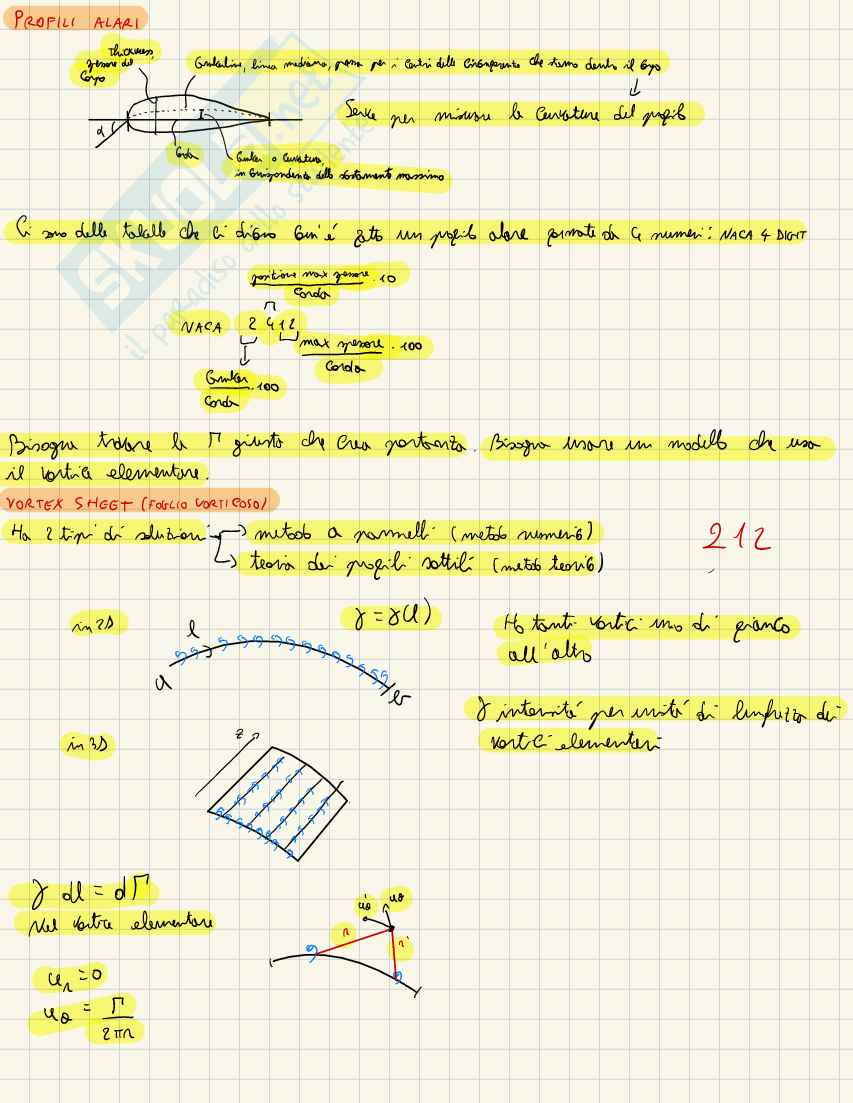 PROFILI ALARI
Thickness,
spessore del
Corpo
Camberline, linea mediana, passa per i centri delle circonferenze che stanno dentro il corpo
Serve per misurare la curvatura del profilo
α
Corda
Camber o curvatura,
in corrispondenza dello scostamento massimo
Ci sono delle tabelle che ci dicono com'è fatto un profilo alare formate da 4 numeri: NACA 4 DIGIT
posizione max spessore · 10
Corda
NACA 2 4 12
max spessore · 100
Corda
Camber · 100
Corda
Bisogna trovare la Γ giusta che crea portanza. Bisogna usare un modello che usa
il vortice elementare.
VORTEX SHEET (FOGLIO VORTICOSO)
Ha 2 tipi di soluzioni
metodo a pannelli (metodo numerico)
teoria dei profili sottili (metodo teorico)
212
in 2D
l
γ = γ(l)
a
b
Ho tanti vortici uno di fianco
all'altro
γ intensità per unità di lunghezza dei
vortici elementari
in 3D
z
γ dl = dΓ
Nel vortice elementare
u_r = 0
u_θ = Γ / 2πr
u_θ'
u_θ
r
r'
skuola.net
il paradiso dello studente